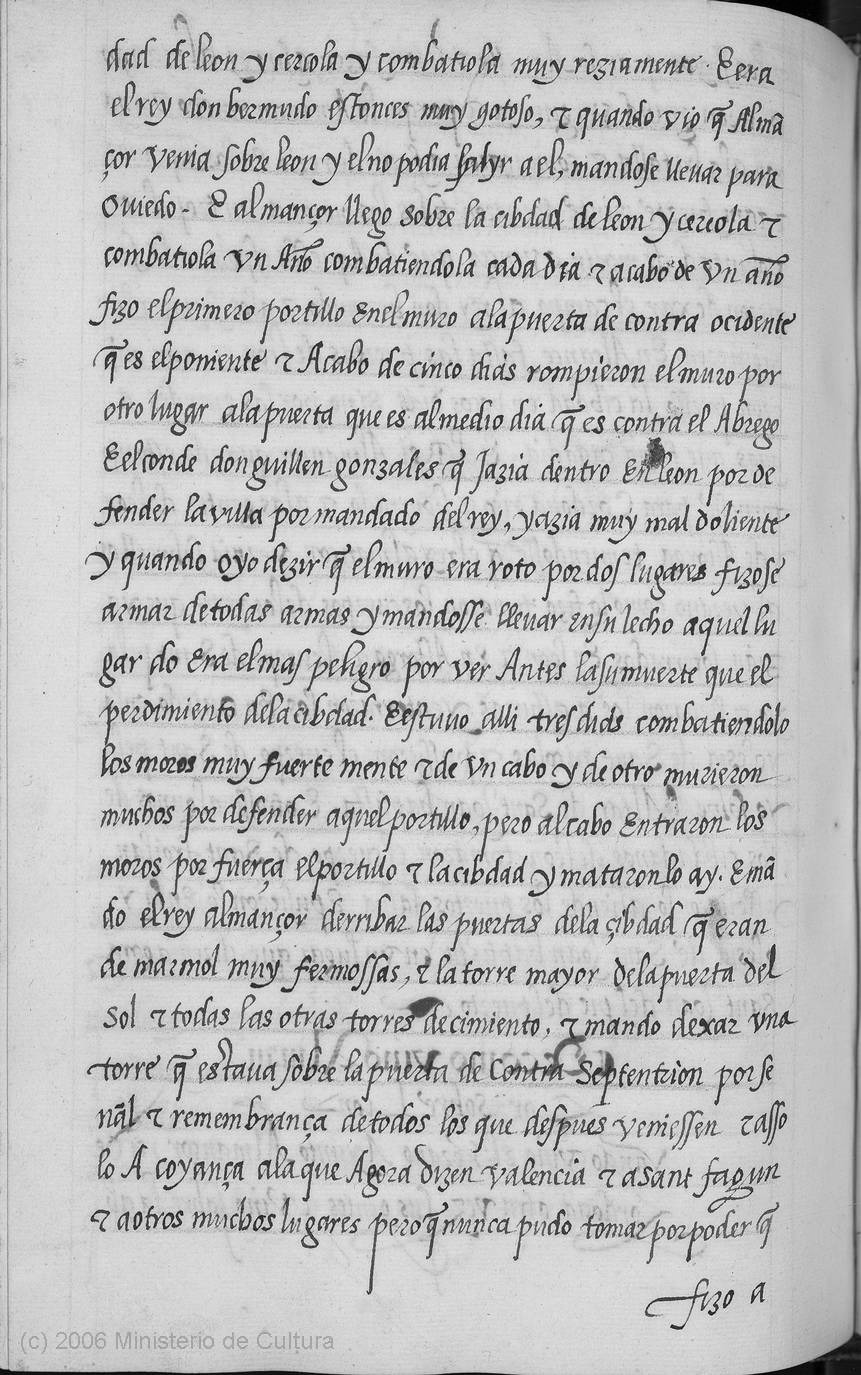 dad de leon y cercola y combatiola muy reziamente. E era
el rey don bermudo estonces muy gotoso, τ quando vio q̃ Almã
çor venia sobre leon y el no podia salyr a el, mandose llevar para
Oviedo. E almançor llego sobre la cibdad de leon y cercola τ
combatiola vn Año combatiendola cada dia τ acabo de vn año
fizo el primero portillo En el muro ala puerta de contra ocidente
q̃ es el poniente τ Acabo de cinco dias rompieron el muro por
otro lugar ala puerta que es al medio dia q̃ es contra el Abrego
E el conde don guillen gonzales q̃ Jazia dentro En leon por de
fender la villa por mandado del rey, yazia muy mal doliente
y quando oyo dezir q̃ el muro era roto por dos lugares fizose
armar de todas armas y mandosse llevar en su lecho aquel lu
gar do Era el mas peligro por ver Antes la su muerte que el
perdimiento dela cibdad. E estuvo alli tres dias combatiendolo
los moros muy fuerte mente τ de vn cabo y de otro murieron
muchos por defender aquel portillo, pero al cabo Entraron los
moros por fuerça el portillo τ la cibdad y mataronlo ay. E mã
do el rey almançor derribar las puertas dela çibdad q̃ eran
de marmol muy fermossas, τ la torre mayor dela puerta del
Sol τ todas las otras torres de cimiento, τ mando dexar vna
torre q̃ estava sobre la puerta de Contra Septentrion por se
ñal τ remembrança de todos los que despues veniessen τ asso
lo A coyança ala que Agora dizen valencia τ a sant fagun
τ a otros muchos lugares pero q̃ nunca pudo tomar por poder q̃
fizo a
(c) 2006 Ministerio de Cultura